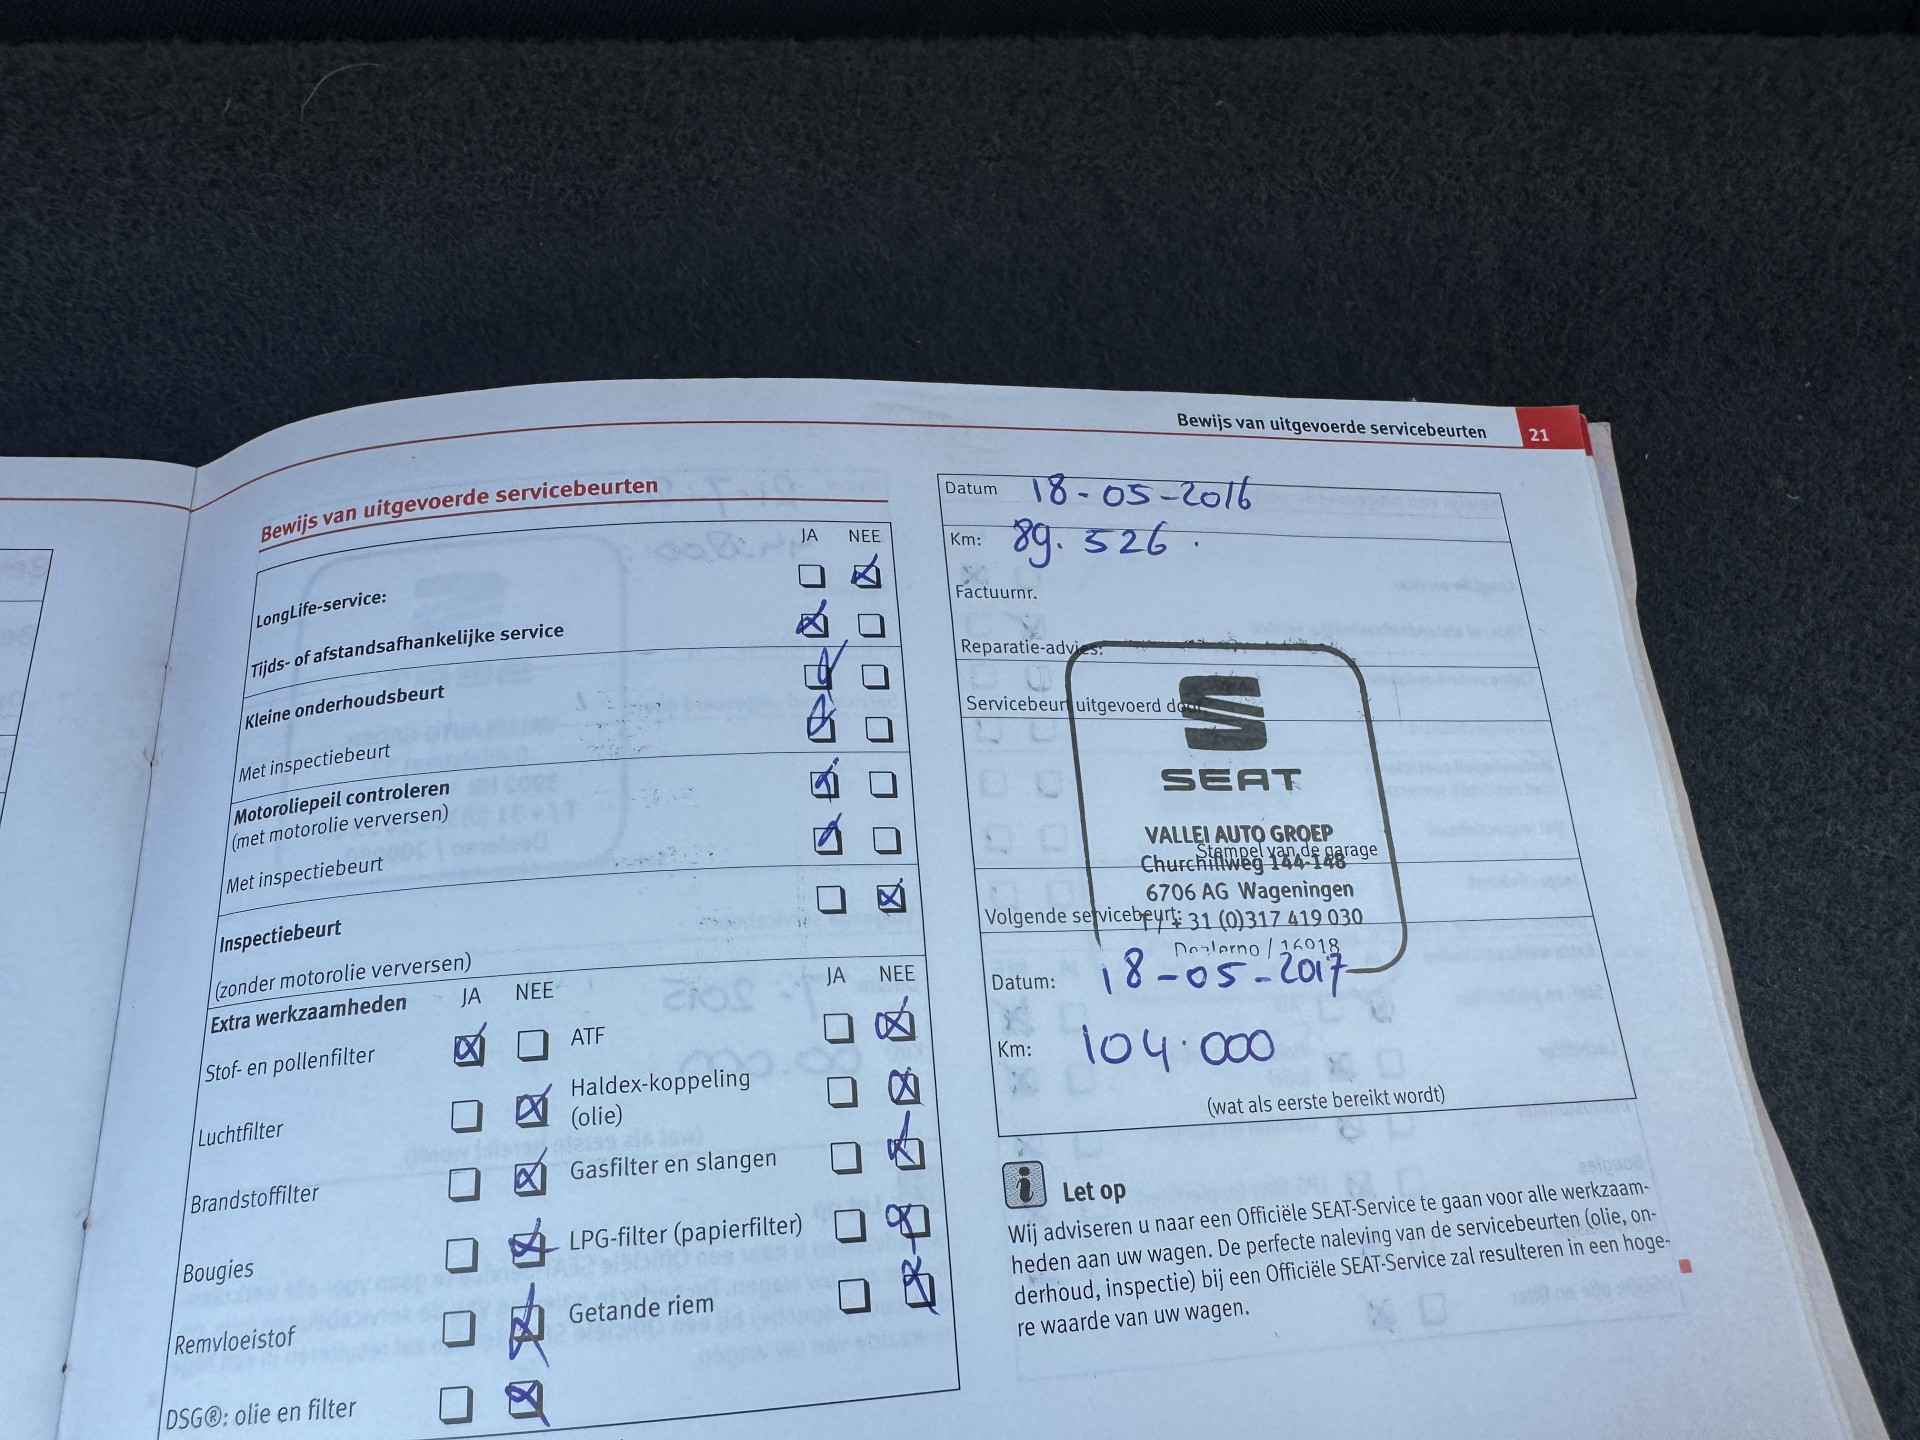 Bewijs van uitgevoerde servicebeurten 21
Bewijs van uitgevoerde servicebeurten
JA NEE
LongLife-service:
Tijds- of afstandsafhankelijke service
Kleine onderhoudsbeurt
Met inspectiebeurt
Motoroliepeil controleren
(met motorolie verversen)
Met inspectiebeurt
Inspectiebeurt
(zonder motorolie verversen)
Extra werkzaamheden JA NEE JA NEE
Stof- en pollenfilter ATF
Luchtfilter Haldex-koppeling
(olie)
Brandstoffilter Gasfilter en slangen
Bougies LPG-filter (papierfilter)
Remvloeistof Getande riem
DSG®: olie en filter
Datum 18-05-2016
Km: 89.526.
Factuurnr.
Reparatie-advies:
Servicebeurt uitgevoerd door
SEAT
VALLEI AUTO GROEP
Stempel van de garage
Churchillweg 144-148
6706 AG Wageningen
Volgende servicebeurt:
T / +31 (0)317 419 030
Dealerno / 16918
Datum: 18-05-2017
Km: 104.000
(wat als eerste bereikt wordt)
i Let op
Wij adviseren u naar een Officiële SEAT-Service te gaan voor alle werkzaam-
heden aan uw wagen. De perfecte naleving van de servicebeurten (olie, on-
derhoud, inspectie) bij een Officiële SEAT-Service zal resulteren in een hoge-
re waarde van uw wagen.